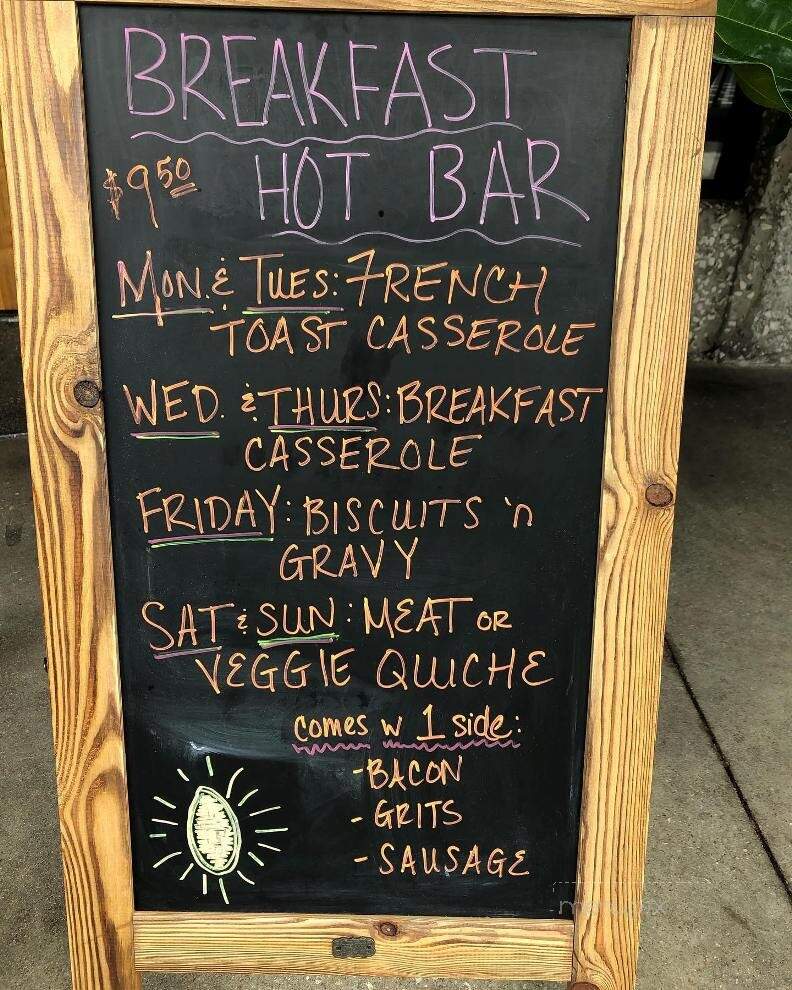 BREAKFAST
$9.50 HOT BAR
MON. & TUES: FRENCH
TOAST CASSEROLE
WED. & THURS: BREAKFAST
CASSEROLE
FRIDAY: BISCUITS 'n
GRAVY
SAT & SUN: MEAT OR
VEGGIE QUICHE
comes w 1 side:
-BACON
- GRITS
- SAUSAGE